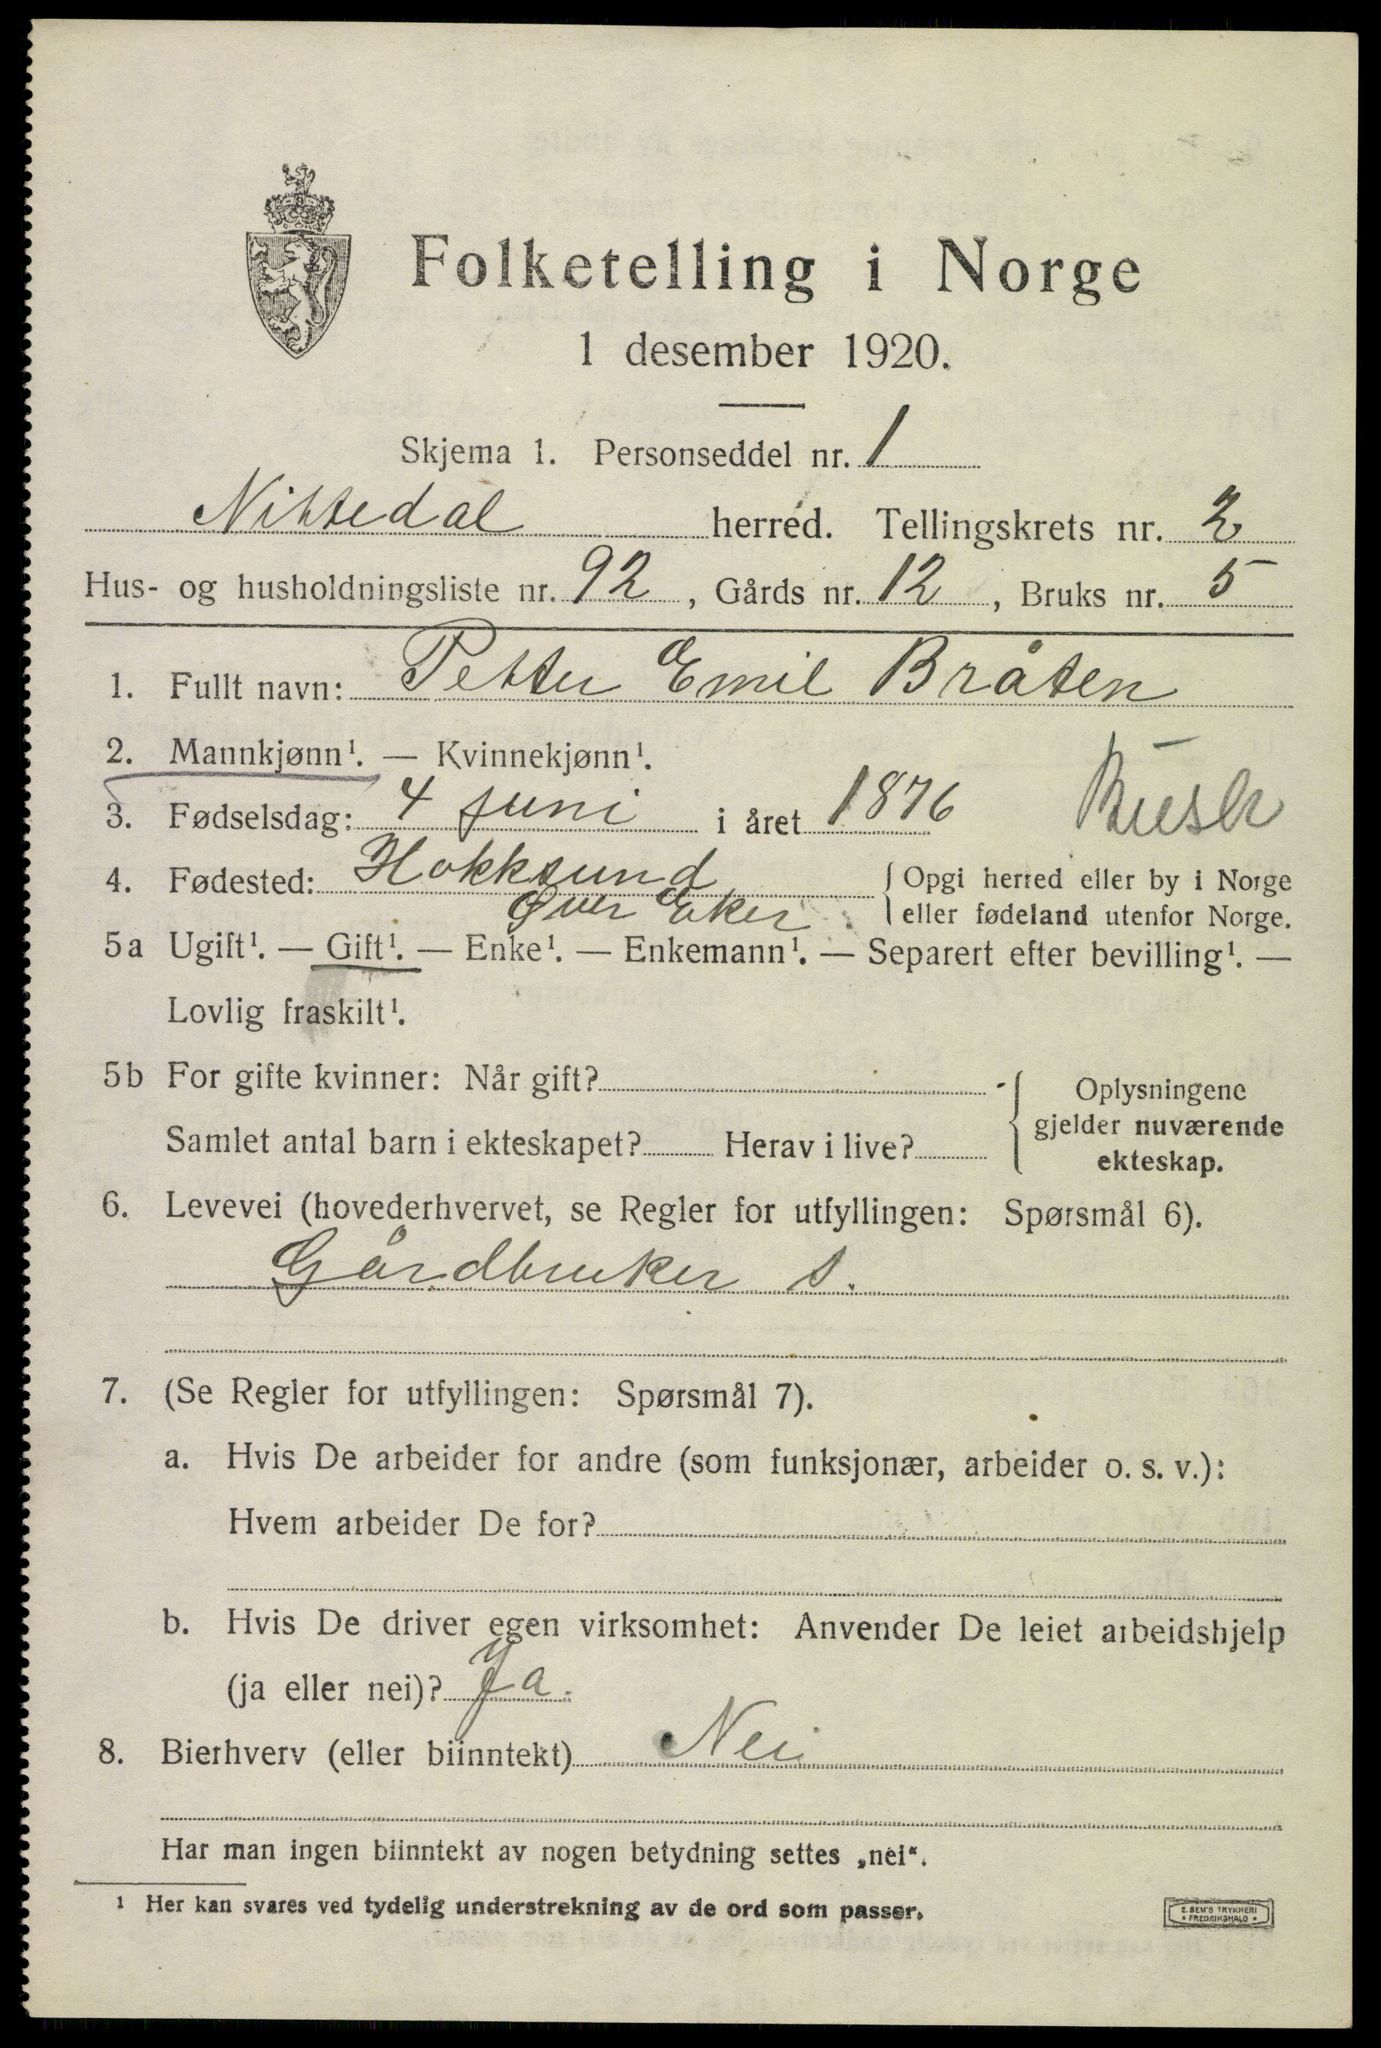 Folketelling i Norge
1 desember 1920.
Skjema 1. Personseddel nr. 1
Nittedal herred. Tellingskrets nr. 2
Hus- og husholdningsliste nr. 92, Gårds nr. 12, Bruks nr. 5
1. Fullt navn: Petter Emil Bråten
2. Mannkjønn¹. — Kvinnekjønn¹.
3. Fødselsdag: 4 juni i året 1876
4. Fødested: Hokksund { Opgi herred eller by i Norge
Øver Eker eller fødeland utenfor Norge.
5a Ugift¹. — Gift¹. — Enke¹. — Enkemann¹. — Separert efter bevilling¹. —
Lovlig fraskilt¹.
5b For gifte kvinner: Når gift? { Oplysningene
gjelder nuværende
Samlet antal barn i ekteskapet? Herav i live?
ekteskap.
6. Levevei (hovederhvervet, se Regler for utfyllingen: Spørsmål 6).
Gårdbruker s.
7. (Se Regler for utfyllingen: Spørsmål 7).
a. Hvis De arbeider for andre (som funksjonær, arbeider o. s. v.):
Hvem arbeider De for?
b. Hvis De driver egen virksomhet: Anvender De leiet arbeidshjelp
(ja eller nei)? Ja.
8. Bierhverv (eller biinntekt) Nei
Har man ingen biinntekt av nogen betydning settes „nei“.
¹ Her kan svares ved tydelig understrekning av de ord som passer.
E. SEM'S TRYKKERI
FREDRIKSHALD